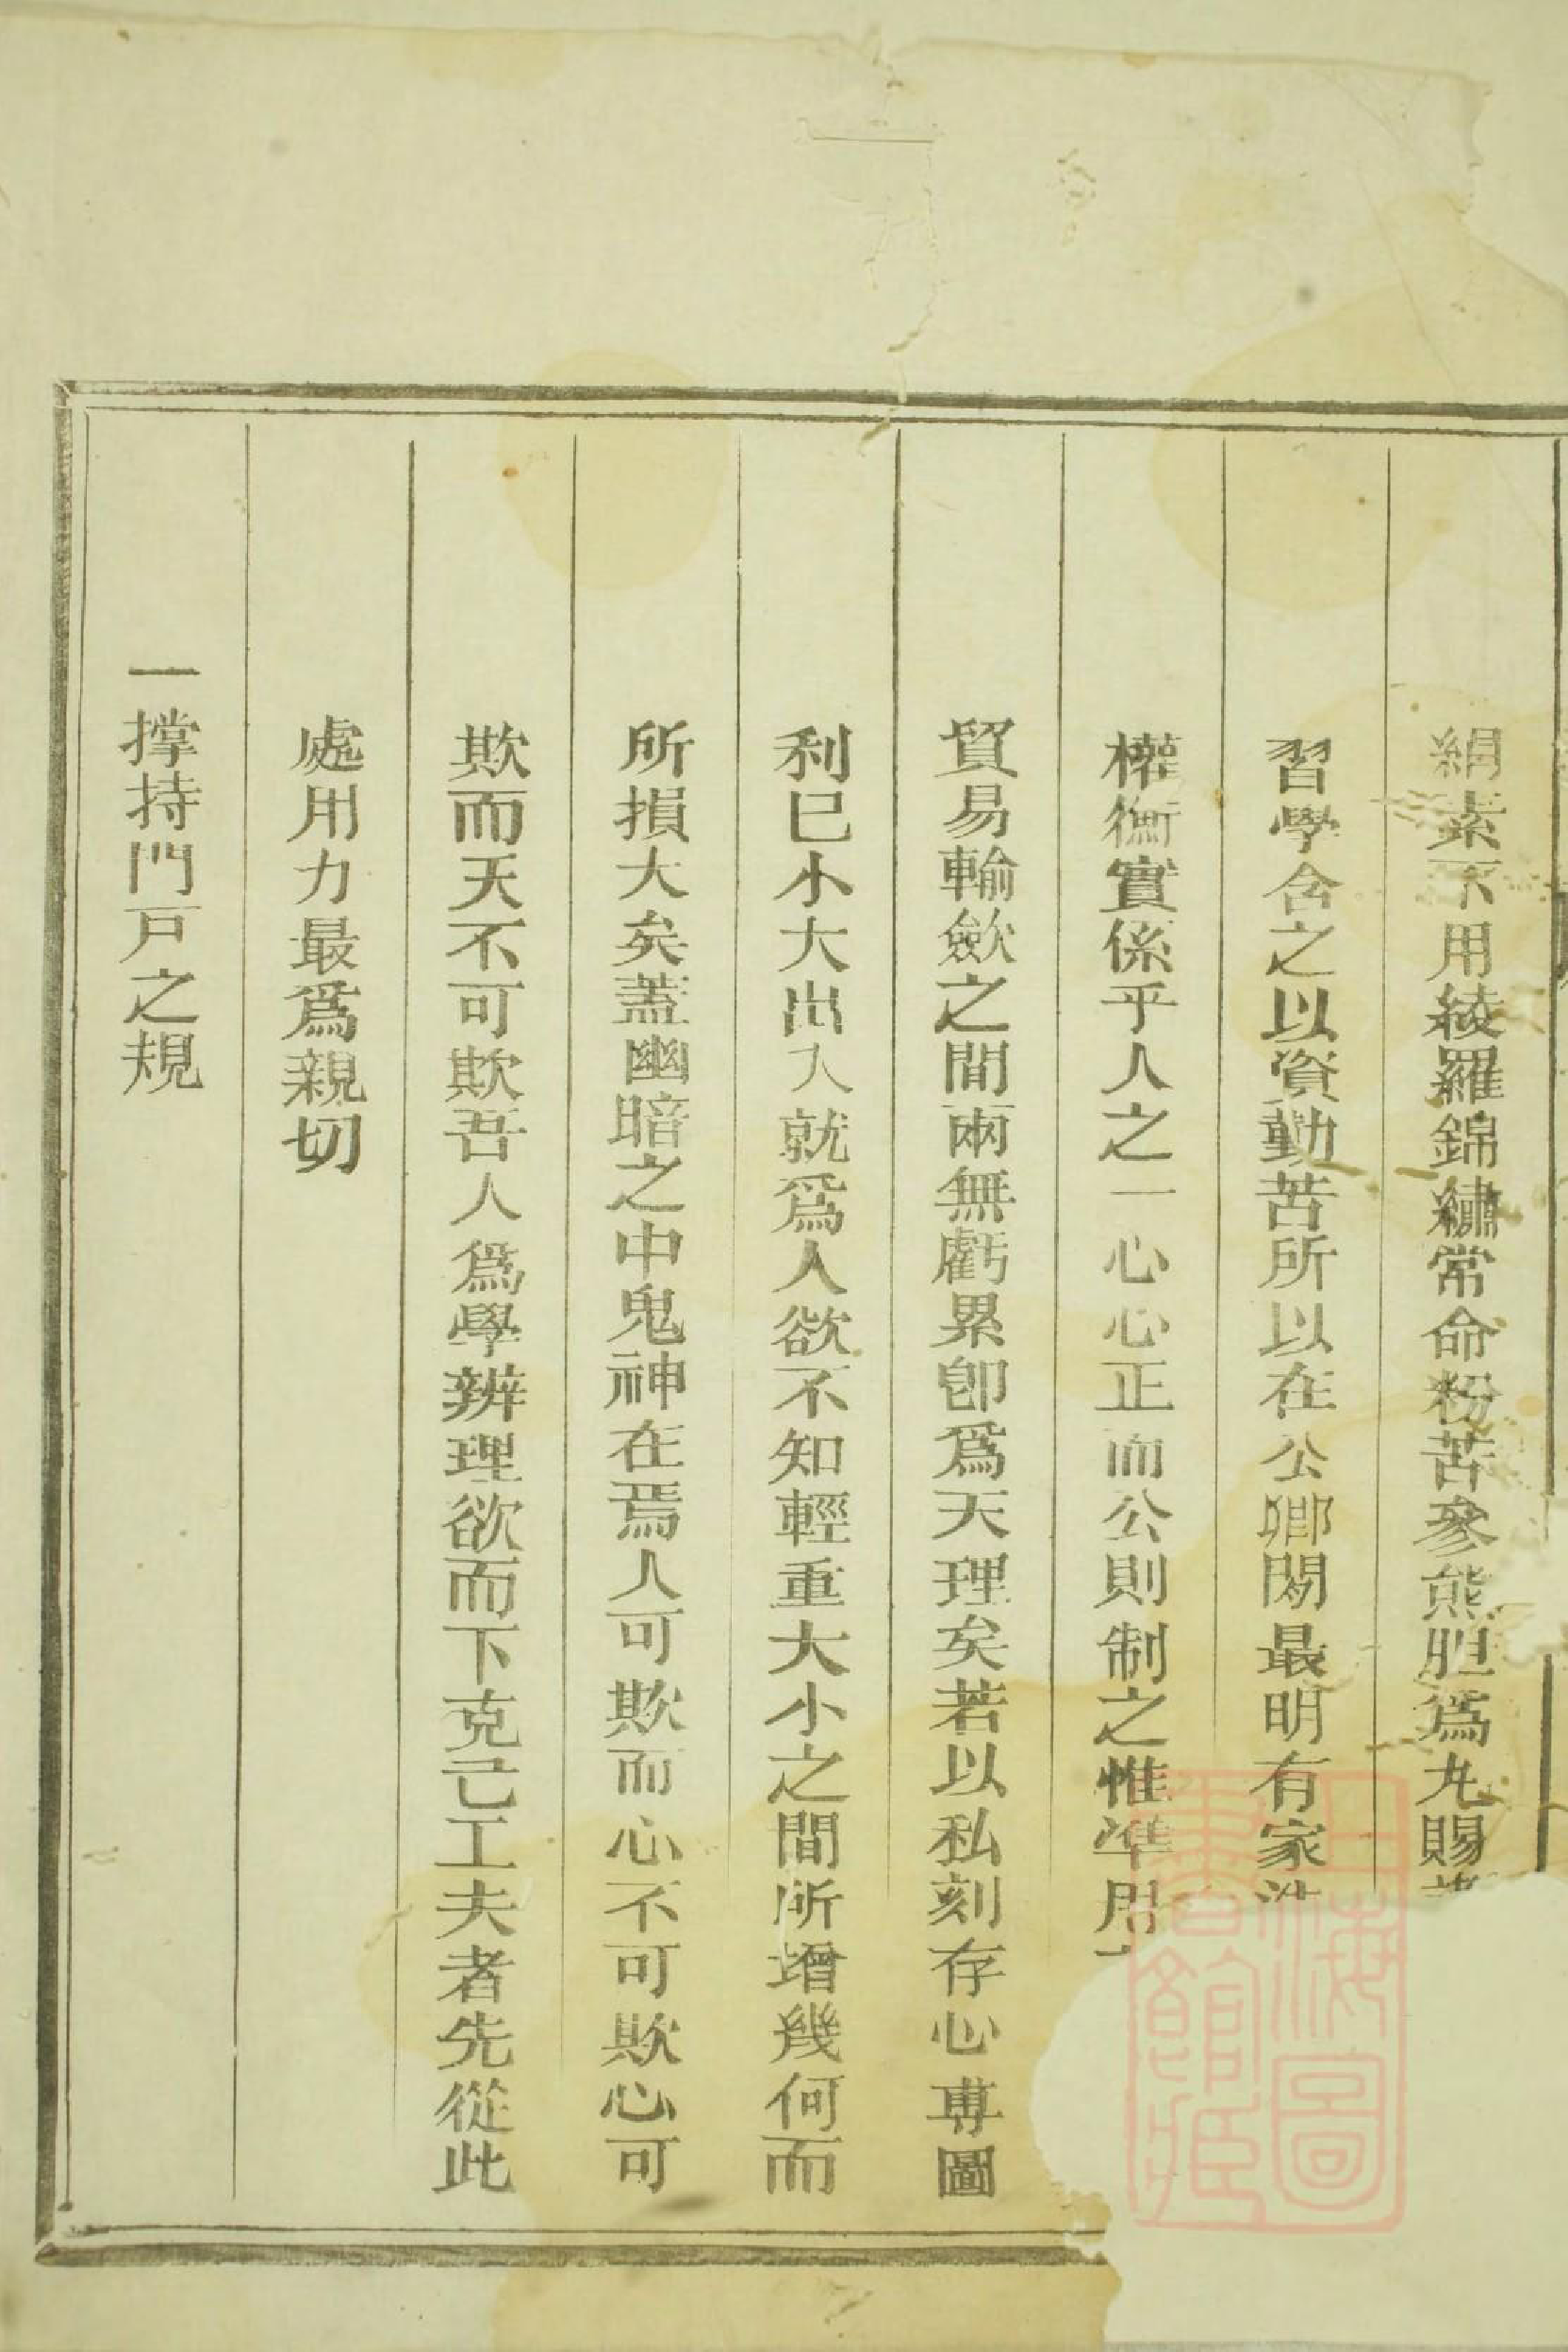 絹素不用綾羅錦繡常命粉苦參熊胆爲丸賜
習學含之以資勤苦所以在公卿間最明有家法
權衡實係乎人之一心心正而公則制之惟準用
貿易輸歛之間兩無虧累卽爲天理矣若以私刻存心專圖
利已小大出入就爲人欲不知輕重大小之間所增幾何而
所損大矣蓋幽暗之中鬼神在焉人可欺而心不可欺心可
欺而天不可欺吾人爲學辨理欲而下克己工夫者先從此
處用力最爲親切
一撑持門戸之規